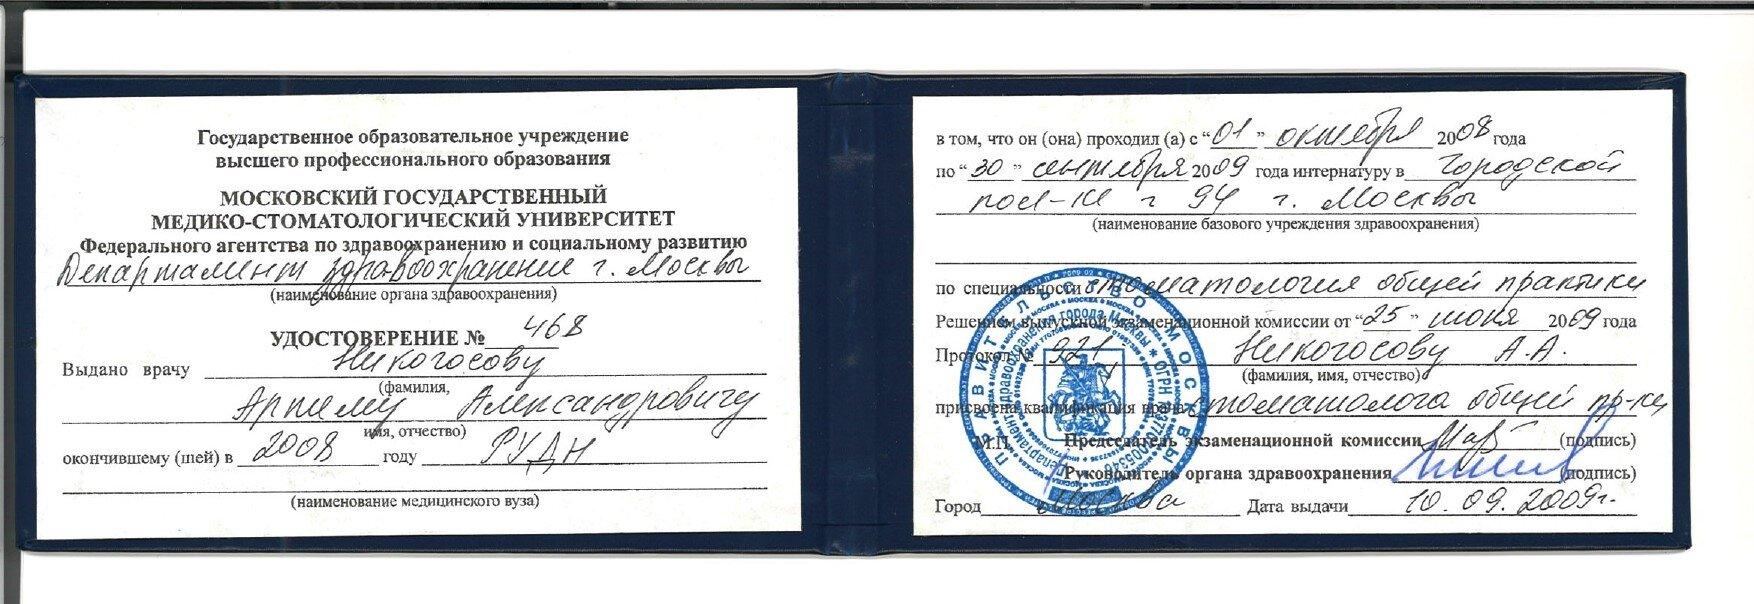 Государственное образовательное учреждение
высшего профессионального образования
МОСКОВСКИЙ ГОСУДАРСТВЕННЫЙ
МЕДИКО-СТОМАТОЛОГИЧЕСКИЙ УНИВЕРСИТЕТ
Федерального агентства по здравоохранению и социальному развитию
Департамент здравоохранение г. Москвы
(наименование органа здравоохранения)
УДОСТОВЕРЕНИЕ № 468
Выдано врачу Никогосову
(фамилия,
Артему Александровичу
имя, отчество)
окончившему (шей) в 2008 году РУДН
(наименование медицинского вуза)
в том, что он (она) проходил (а) с “01” октября 2008 года
по “30” сентября 2009 года интернатуру в Городской
пол-ке г 94 г. Москвы
(наименование базового учреждения здравоохранения)
по специальности стоматология общей практики
Решением выпускной экзаменационной комиссии от “25” июня 2009 года
Протокол № 921 Никогосову А.А.
(фамилия, имя, отчество)
присвоена квалификация врача стоматолога общей пр-ки
М.П. Председатель экзаменационной комиссии (подпись)
Руководитель органа здравоохранения (подпись)
Город Москва Дата выдачи 10.09.2009г.
ПРАВИТЕЛЬСТВО МОСКВЫ
Департамент здравоохранения города Москвы